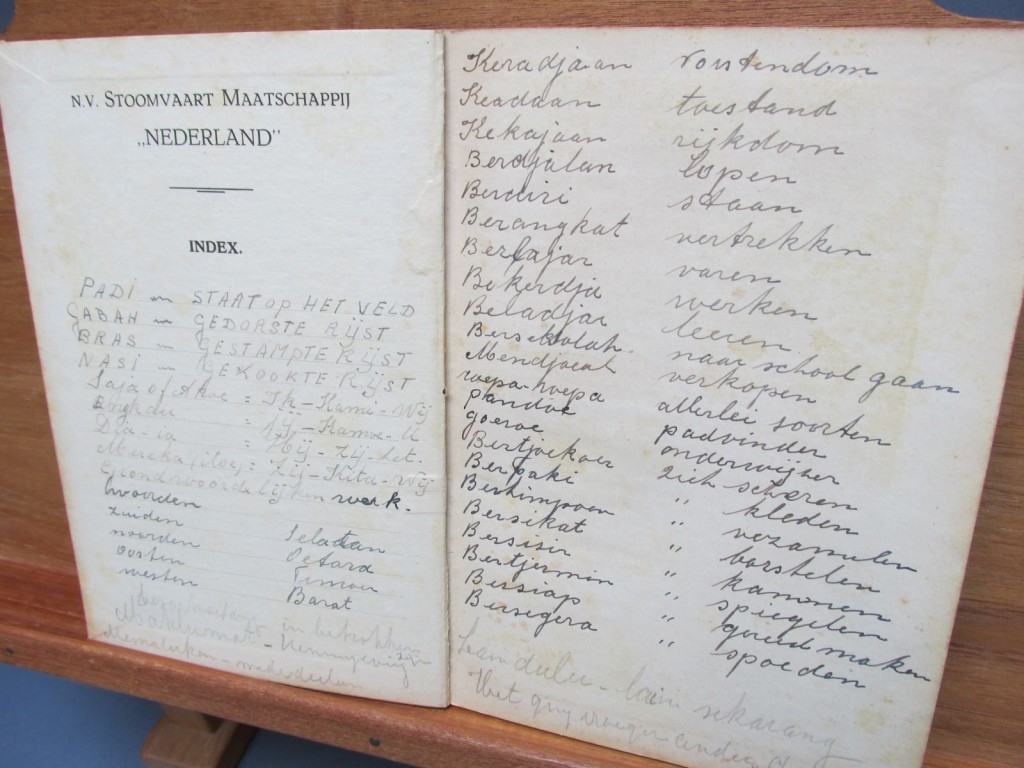 N.V. STOOMVAART MAATSCHAPPIJ
„NEDERLAND"
INDEX.
PADI STAAT OP HET VELD
GABAH GEDORSTE RIJST
BRAS GESTAMPTE RIJST
NASI GEKOOKTE RIJST
Saja of Akoe = Ik - Kami - Wij
Engkau = Jij - Kamoe - U
Dia - ia = Hij - Zij - het.
Mereka = Zij - Kita - Wij
werk.
woorden
zuiden Selatan
noorden Oetara
oosten Timoer
westen Barat
in betrekking
Memalukan -
Keradjaan vorstendom
Keadaan toestand
Kekajaan rijkdom
Berdjalan lopen
Berdiri staan
Berangkat vertrekken
Berlajar varen
Bekerdja werken
Beladjar leeren
Bersekolah. naar school gaan
Mendjoeal verkopen
roepa-roepa allerlei soorten
pandoe padvinder
goeroe onderwijzer
Bertjoekoer zich scheren
Berpaki " kleden
Berhimpoen " verzamelen
Bersikat " borstelen
Bersisir " kammen
Bertjermin " spiegelen
Bersiap " gereed maken
Bersegera " spoeden
dulu - lain sekarang
Het ging vroeger anders